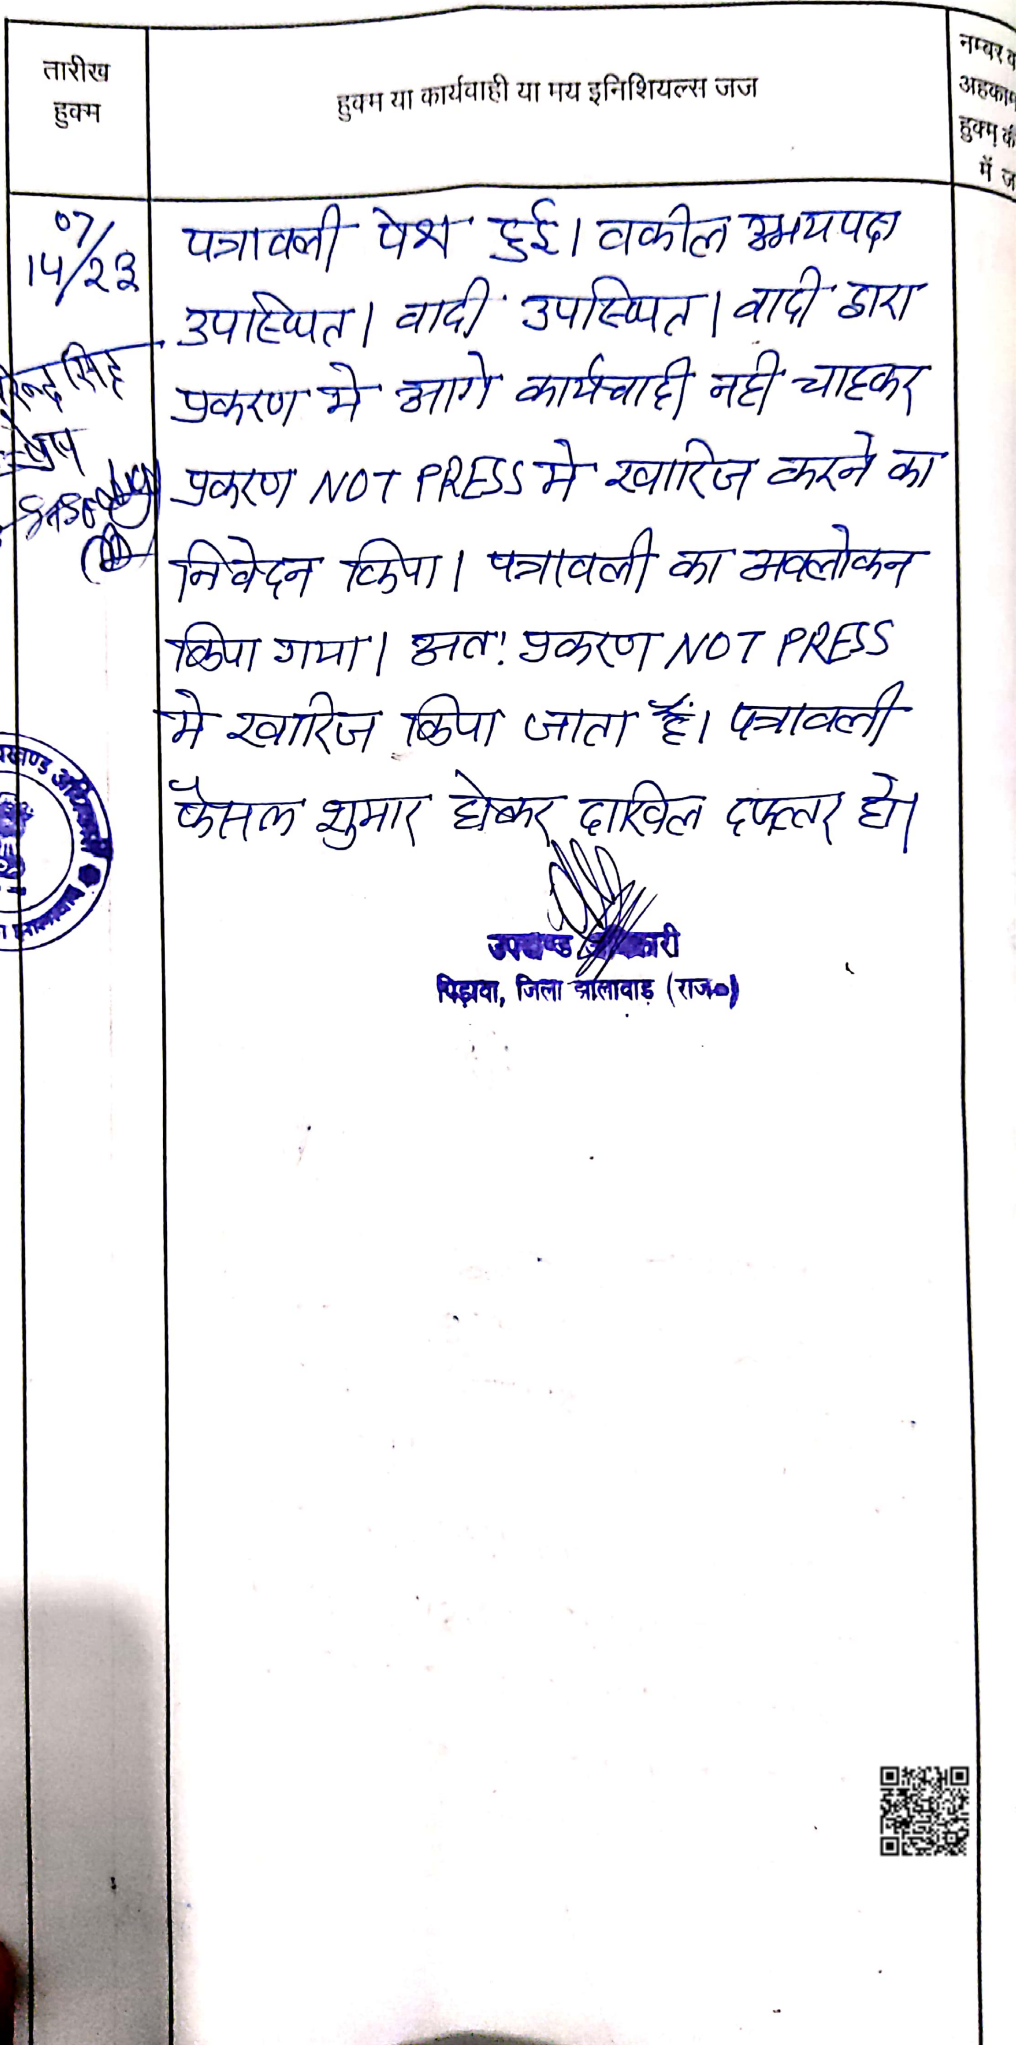 तारीख
हुक्म
हुक्म या कार्यवाही या मय इनिशियल्स जज
नम्बर व
अहकाम
हुक्म की
में ज
07/
14/23
पत्रावली पेश हुई। वकील उभयपक्ष
उपस्थित। वादी उपस्थित। वादी द्वारा
प्रकरण मे आगे कार्यवाही नही चाहकर
प्रकरण NOT PRESS मे खारिज करने का
निवेदन किया। पत्रावली का अवलोकन
किया गया। अतः प्रकरण NOT PRESS
मे खारिज किया जाता हैं। पत्रावली
फैसल शुमार होकर दाखिल दफ्तर हो।
सिंह
उपखण्ड अधिकारी
पिड़ावा, जिला झालावाड़ (राज०)